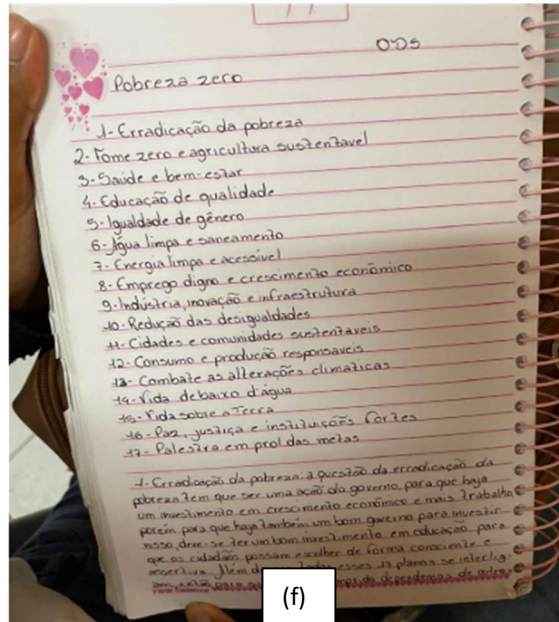 ODS
Pobreza zero
1- Erradicação da pobreza
2- Fome zero e agricultura sustentavel
3- Saúde e bem-estar
4- Educação de qualidade
5- Igualdade de gênero
6- Água limpa e saneamento
7- Energia limpa e acessível
8- Emprego digno e crescimento econômico
9- Indústria, inovação e infraestrutura
10- Redução das desigualdades
11- Cidades e comunidades sustentaveis
12- Consumo e produção responsaveis
13- Combate as alterações climaticas
14- Vida debaixo d'água
15- Vida sobre a Terra
16- Paz, justiça e instituições fortes
17- Palestra em prol das metas
1- Erradicação da pobreza: a questão da erradicação da
pobreza tem que ser uma ação do governo, para que haja
um investimento em crescimento econômico e mais trabalho
porém para que haja também um bom governo para investir
nisso, deve-se ter um bom investimento em educação, para
que os cidadãos possam escolher de forma consciente e
assertiva. Além d todos esses 17 planos se interlig-
am então para qu dependemos de outros
(f)